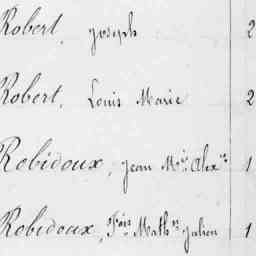 Robert, Joseph 2
Robert, Louis Marie 2
Robidoux, Jean M.ie Alex.re 1
Robidoux, Fçois Math.n Julien 1